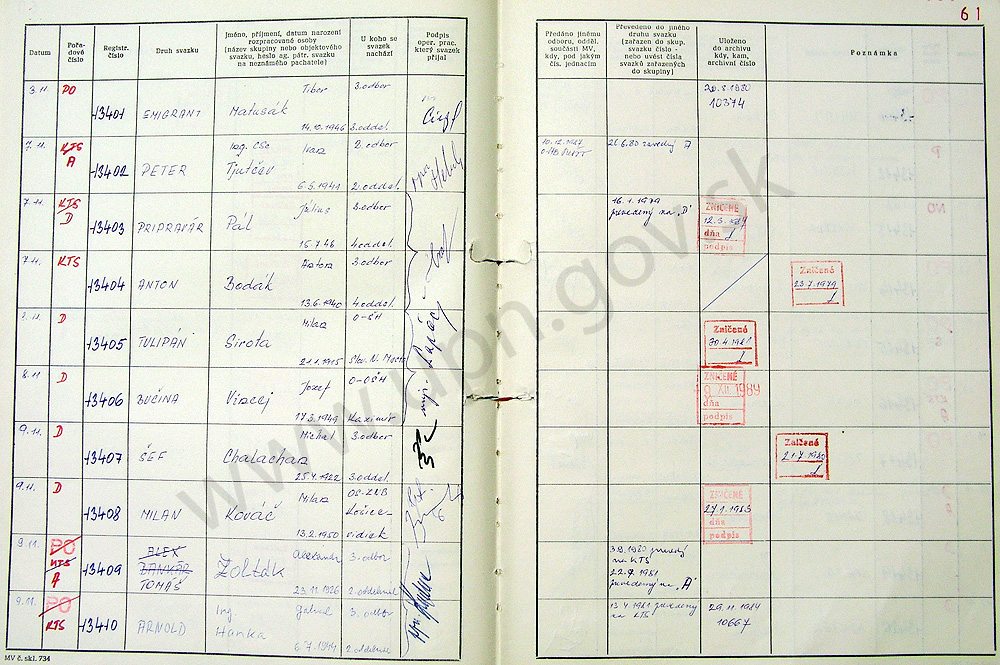 61
Datum
Pořa-
dové
číslo
Registr.
číslo
Druh svazku
Jméno, příjmení, datum narození
rozpracované osoby
(název skupiny nebo objektového
svazku, heslo ag. pátr. svazku
na neznámého pachatele)
U koho se
svazek
nachází
Podpis
oper. prac.
který svazek
přijal
Předáno jinému
odboru, odděl.
součásti MV,
kdy, pod jakým
čís. jednacím
Převedeno do jiného
druhu svazku
(zařazen do skup.
svazku číslo -
nebo uvést čísla
svazků zařazených
do skupiny)
Uloženo
do archivu
kdy, kam,
archivní číslo
Poznámka
3.11. PO 13401 EMIGRANT Matusák Tibor 14.10.1946 3.odbor 3.oddel.
20.8.1980
10374
7.11. KTS A 13402 PETER Ing. CSc Ivan Tjutčev 6.5.1941 2.odbor 2.oddel.
10.12.1984
26.6.80 zavedený A
7.11. KTS D 13403 PRIPRAVÁR Július Pál 15.7.46 3.odbor 4.oddel.
16.1.1979
prevedený na "D"
ZNIČENÉ
dňa
podpis
7.11. KTS 13404 ANTON Bodák 13.6.1940 3.odbor 4.oddel.
Zničené
23.7.1979
D 13405 TULIPÁN Milan Sirota 21.1.1915 O-ŠtB Slov. N. Mesto
Zničené
30.4.1981
8.11 D 13406 BUČINA Jozef 17.3.1949
ZNIČENÉ
XII. 1989
dňa
podpis
9.11. D 13407 ŠÉF Michal Chalachan 25.4.1922 3.odbor 3.oddel.
Zničené
21.7.1980
9.11. D 13408 MILAN Milan Kováč 13.2.1950 Košice vidiek
ZNIČENÉ
27.1.1983
dňa
podpis
9.11. PO KTS A 13409 ALEX BANKÁR TOMÁŠ Alexander Zolták 23.11.1926 3.odbor 2.oddelenie
22.9.1981
prevedený na "A"
9.11. PO KTS 13410 ARNOLD Ing. Gabriel Hanka 6.7.1944 3.odbor 2.oddelenie
13.4.1981 prevedený
na KTS
29.11.1984
10667
MV č. skl. 734
www.upn.gov.sk